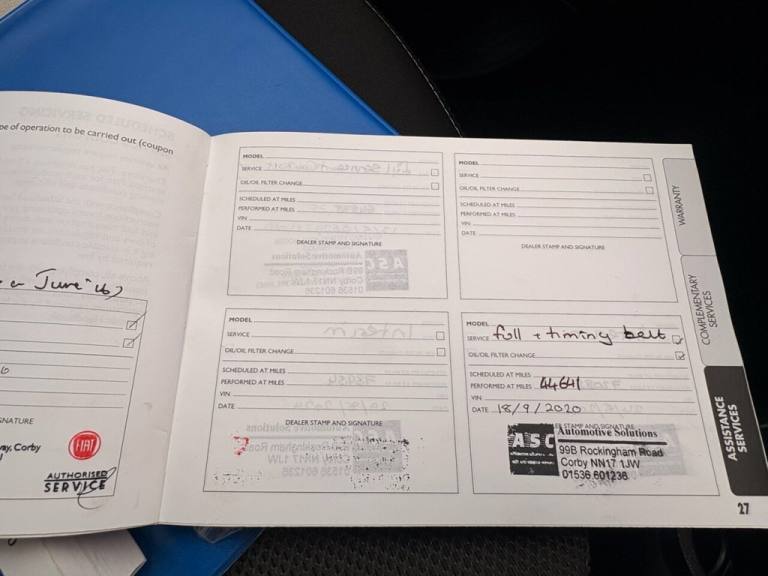 pe of operation to be carried out (coupon
e or June "16)
6
GNATURE
way, Corby
FIAT
AUTHORISED
SERVICE
MODEL
SERVICE
OIL/OIL FILTER CHANGE
SCHEDULED AT MILES
PERFORMED AT MILES
VIN
DATE
DEALER STAMP AND SIGNATURE
MODEL
SERVICE
OIL/OIL FILTER CHANGE
SCHEDULED AT MILES
PERFORMED AT MILES
VIN
DATE
DEALER STAMP AND SIGNATURE
MODEL
SERVICE
OIL/OIL FILTER CHANGE
SCHEDULED AT MILES
PERFORMED AT MILES
VIN
DATE
DEALER STAMP AND SIGNATURE
MODEL
SERVICE full + timing belt
OIL/OIL FILTER CHANGE
SCHEDULED AT MILES
PERFORMED AT MILES 44641
VIN
DATE 18/9/2020
ER STAMP AND SIGNATURE
ASC Automotive Solutions
99B Rockingham Road
Corby NN17 1JW
01536 601236
WARRANTY
COMPLEMENTARY
SERVICES
ASSISTANCE
SERVICES
27